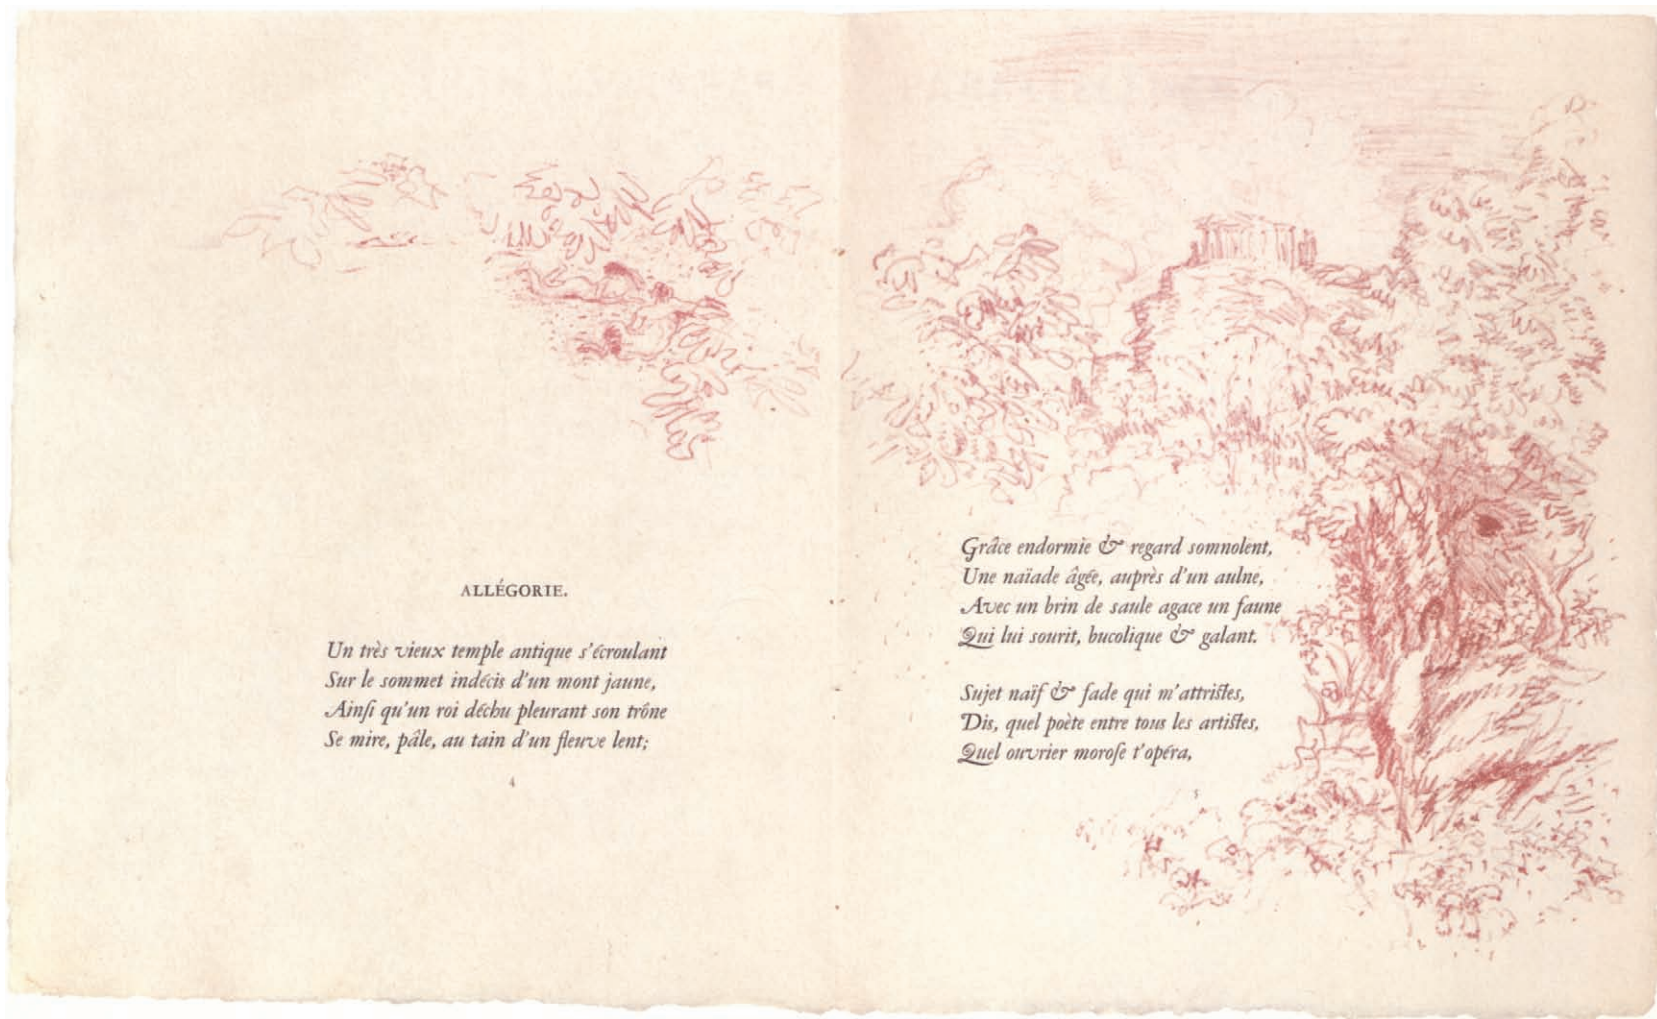 ALLÉGORIE.
Un très vieux temple antique s'écroulant
Sur le sommet indécis d'un mont jaune,
Ainſi qu'un roi déchu pleurant son trône
Se mire, pâle, au tain d'un fleuve lent;
4
Grâce endormie & regard somnolent,
Une naïade âgée, auprès d'un aulne,
Avec un brin de saule agace un faune
Qui lui sourit, bucolique & galant.
Sujet naïf & fade qui m'attristes,
Dis, quel poète entre tous les artistes,
Quel ouvrier moroſe t'opéra,
5